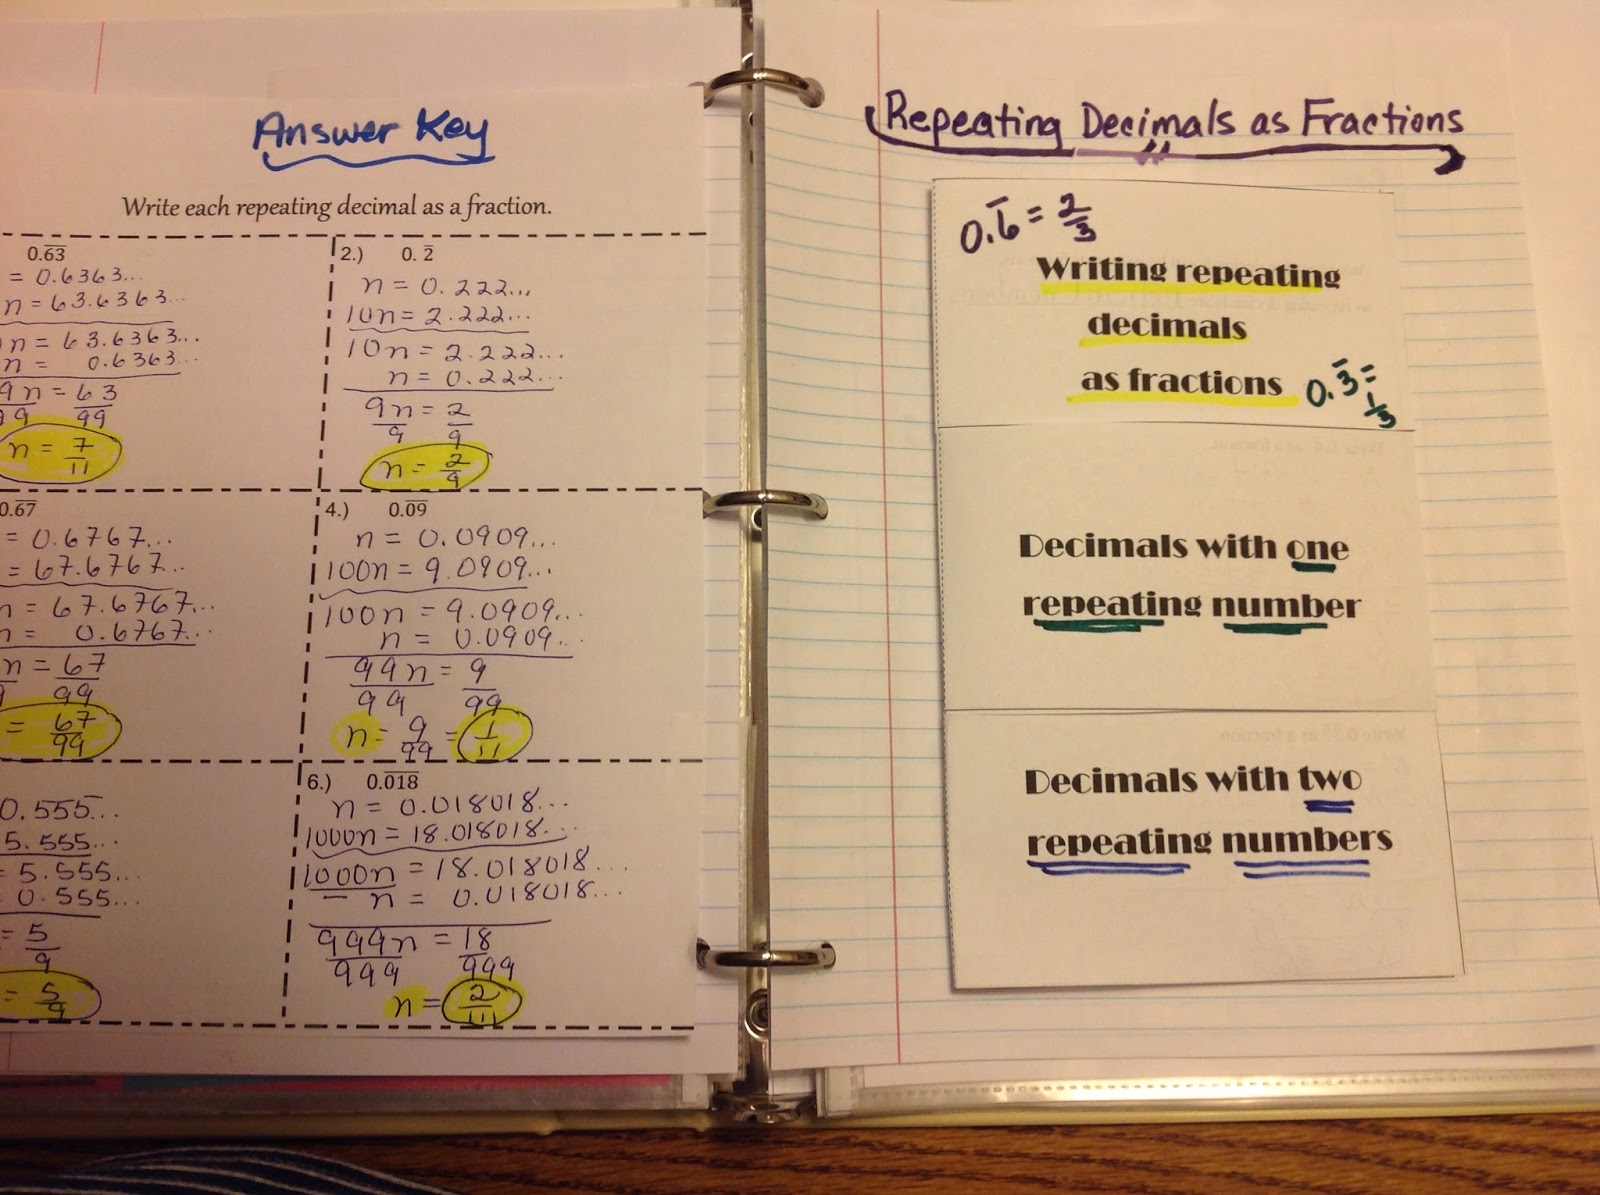 Answer Key
Write each repeating decimal as a fraction.
0.6̅3̅
= 0.6363...
n = 63.6363...
n = 63.6363...
n = 0.6363...
9n = 63
99 99
n = 7/11
2.) 0.2̅
n = 0.222...
10n = 2.222...
10n = 2.222...
n = 0.222...
9n = 2
9 9
n = 2/9
0.6̅7̅
= 0.6767...
= 67.6767...
n = 67.6767...
n = 0.6767...
n = 67
9 99
= 67/99
4.) 0.0̅9̅
n = 0.0909...
100n = 9.0909...
100n = 9.0909...
n = 0.0909...
99n = 9
99 99
n = 9/99 = 1/11
0.555...
5.555...
= 5.555...
0.555...
= 5/9
= 5/9
6.) 0.0̅1̅8̅
n = 0.018018...
1000n = 18.018018...
1000n = 18.018018...
- n = 0.018018...
999n = 18
999 999
n = 2/111
Repeating Decimals as Fractions
0.6̅ = 2/3
Writing repeating
decimals
as fractions
0.3̅ = 1/3
Decimals with one
repeating number
Decimals with two
repeating numbers